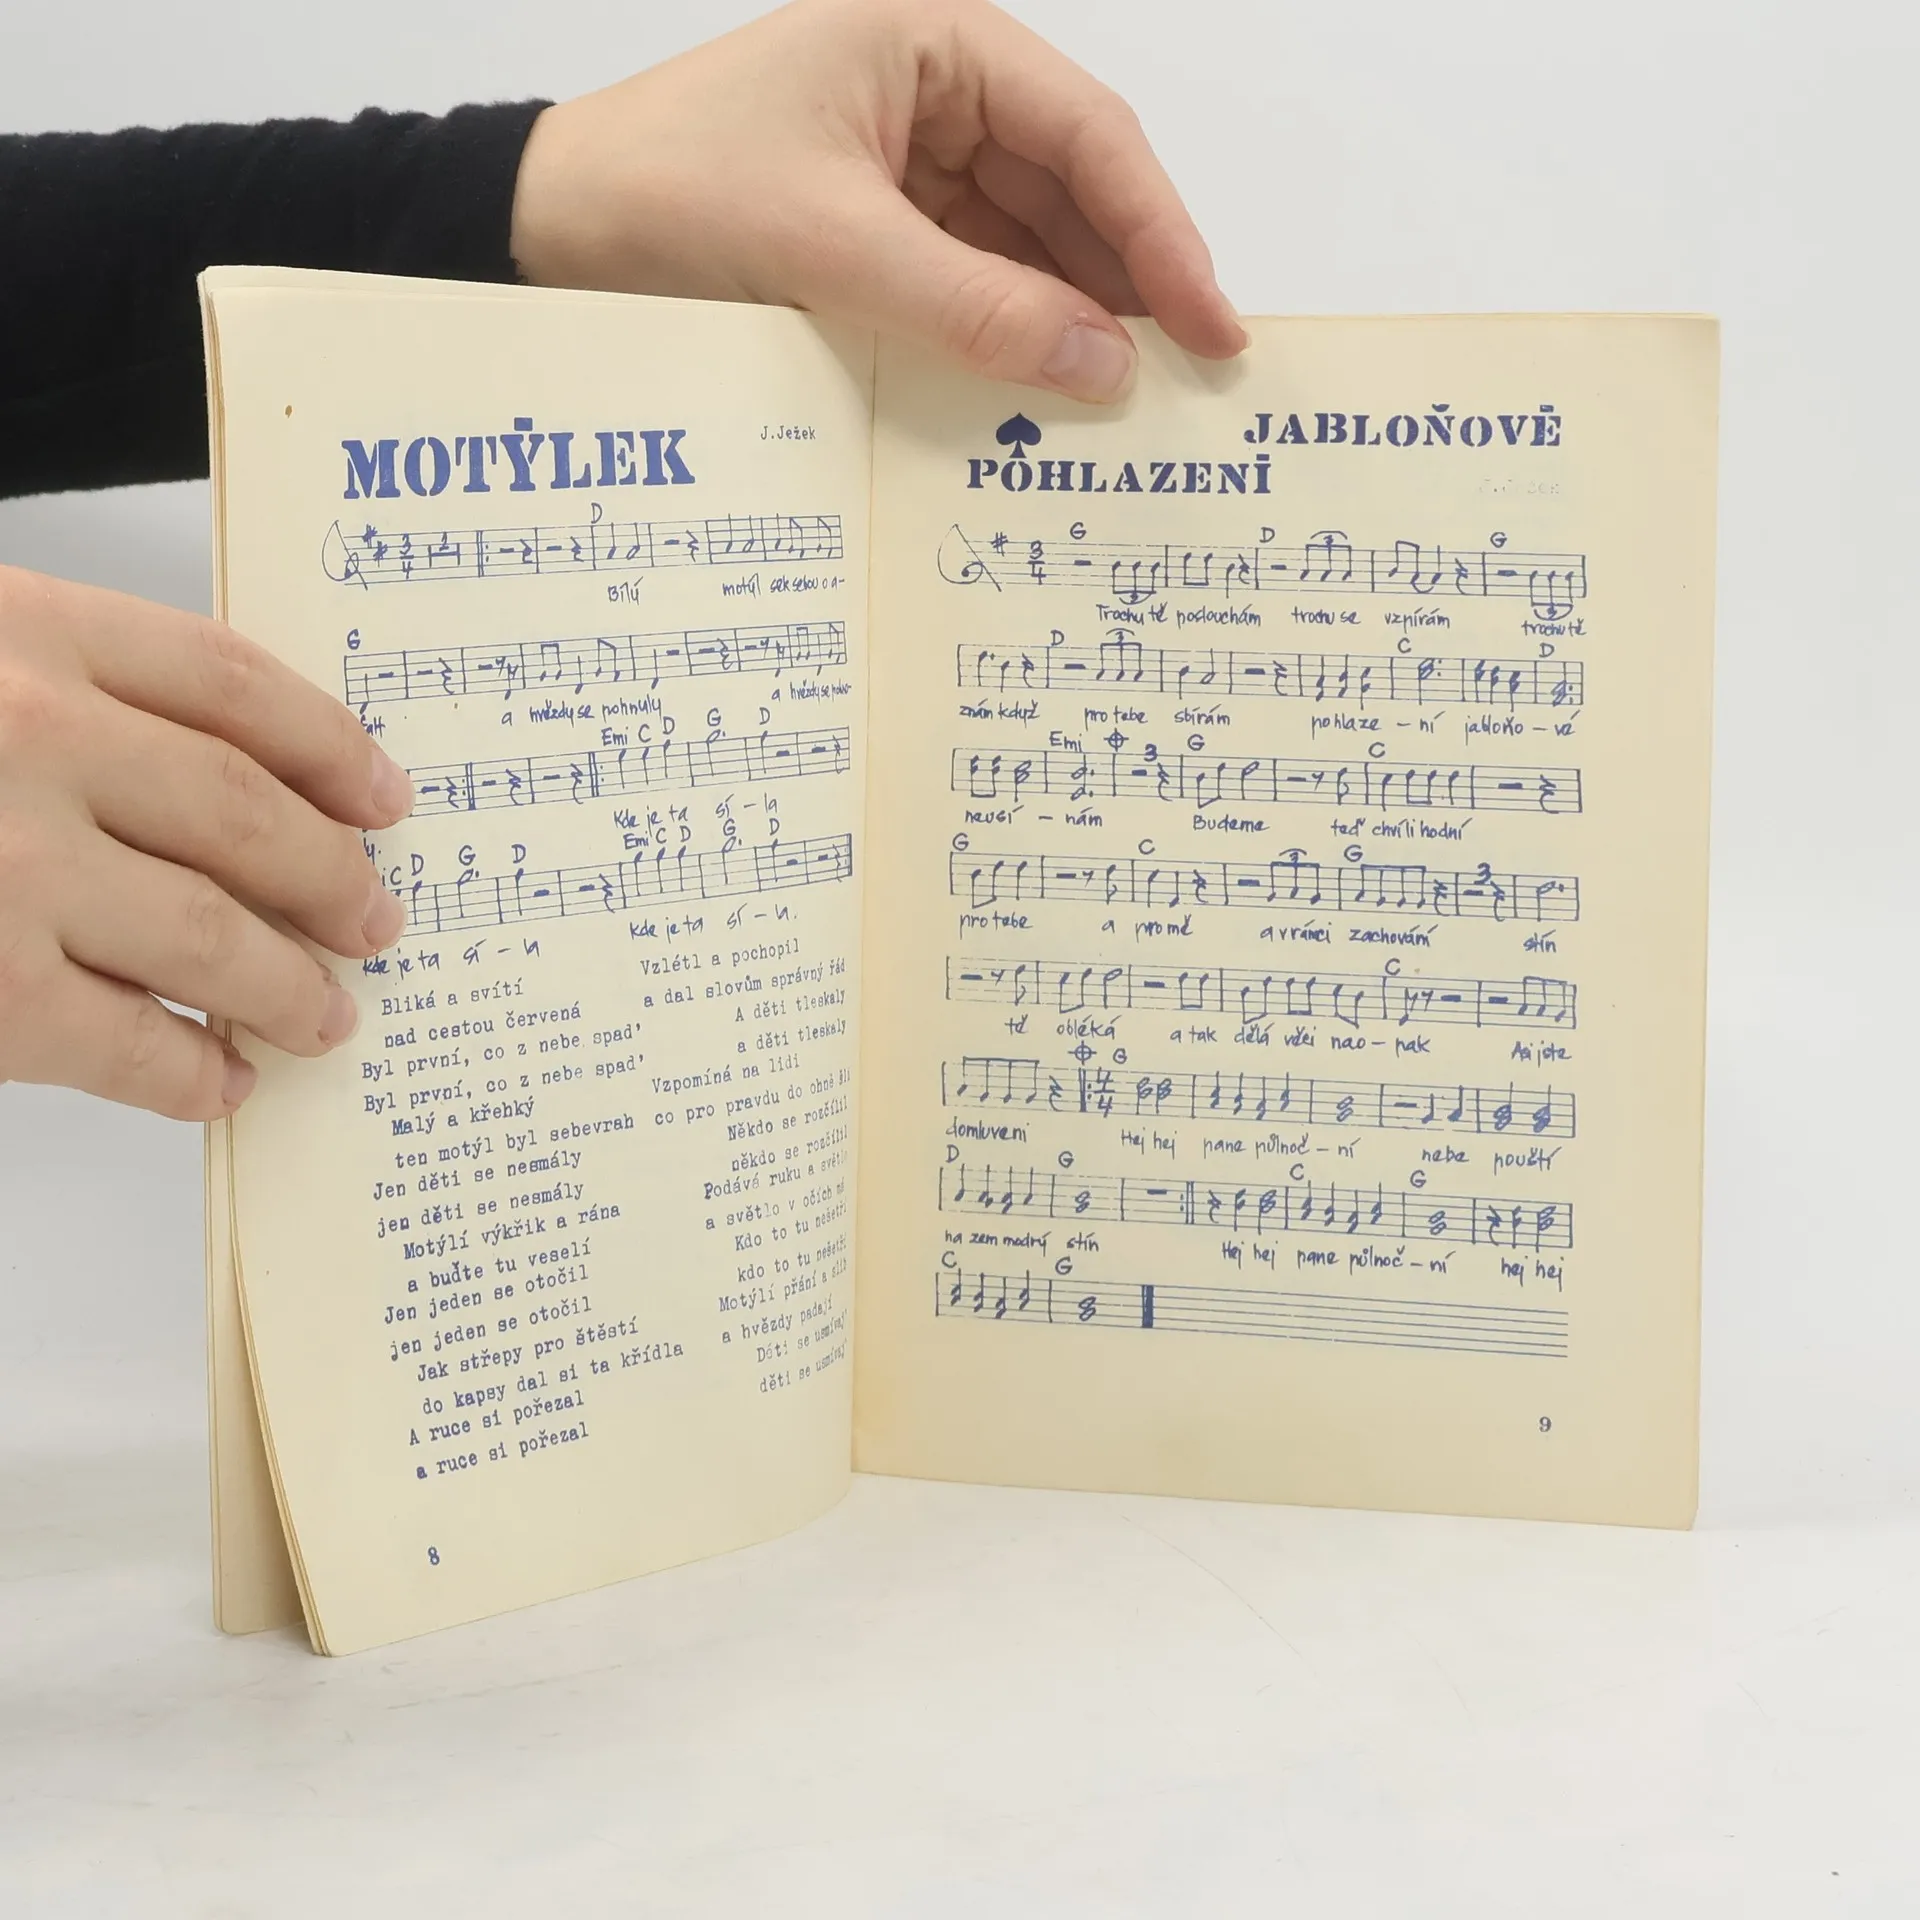 MOTÝLEK
J.Ježek
D
Bílý motýl sek sebou o a-
G
a hvězdy se pohnuly a hvězdy se pohnu-
Emi C D G D
ly.
Kde je ta sí - la
C D G D Emi C D G D
Kde je ta sí - la Kde je ta sí - la.
Bliká a svítí
nad cestou červená
Byl první, co z nebe spad'
Byl první, co z nebe spad'
Malý a křehký
ten motýl byl sebevrah
Jen děti se nesmály
jen děti se nesmály
Motýlí výkřik a rána
a buďte tu veselí
Jen jeden se otočil
jen jeden se otočil
Jak střepy pro štěstí
do kapsy dal si ta křídla
A ruce si pořezal
a ruce si pořezal
Vzlétl a pochopil
a dal slovům správný řád
A děti tleskaly
a děti tleskaly
Vzpomíná na lidi
co pro pravdu do ohně šli
Někdo se rozčílil
někdo se rozčílil
Podává ruku a světlo
a světlo v očích má
Kdo to tu nešetří
kdo to tu nešetří
Motýlí přání a slib
a hvězdy padají
Děti se usmívaj'
děti se usmívaj'
8
JABLOŇOVÉ
POHLAZENÍ
J.Ježek
G D G
3/4 3 3 3
Trochu tě poslouchám trochu se vzpírám trochu tě
D 3 C D
znám když pro tebe sbírám pohlaze - ní jabloňo - vé
Emi 3 G C
neusí - nám Budeme teď chvíli hodní
G C 3 G 3
pro tebe a pro mě a v rámci zachování stín
C
tě obléká a tak dělá věci nao - pak Asi jste
G
4/4
domluveni Hej hej pane půlnoč - ní nebe pouští
D G C G
na zem modrý stín Hej hej pane půlnoč - ní hej hej
C G
9